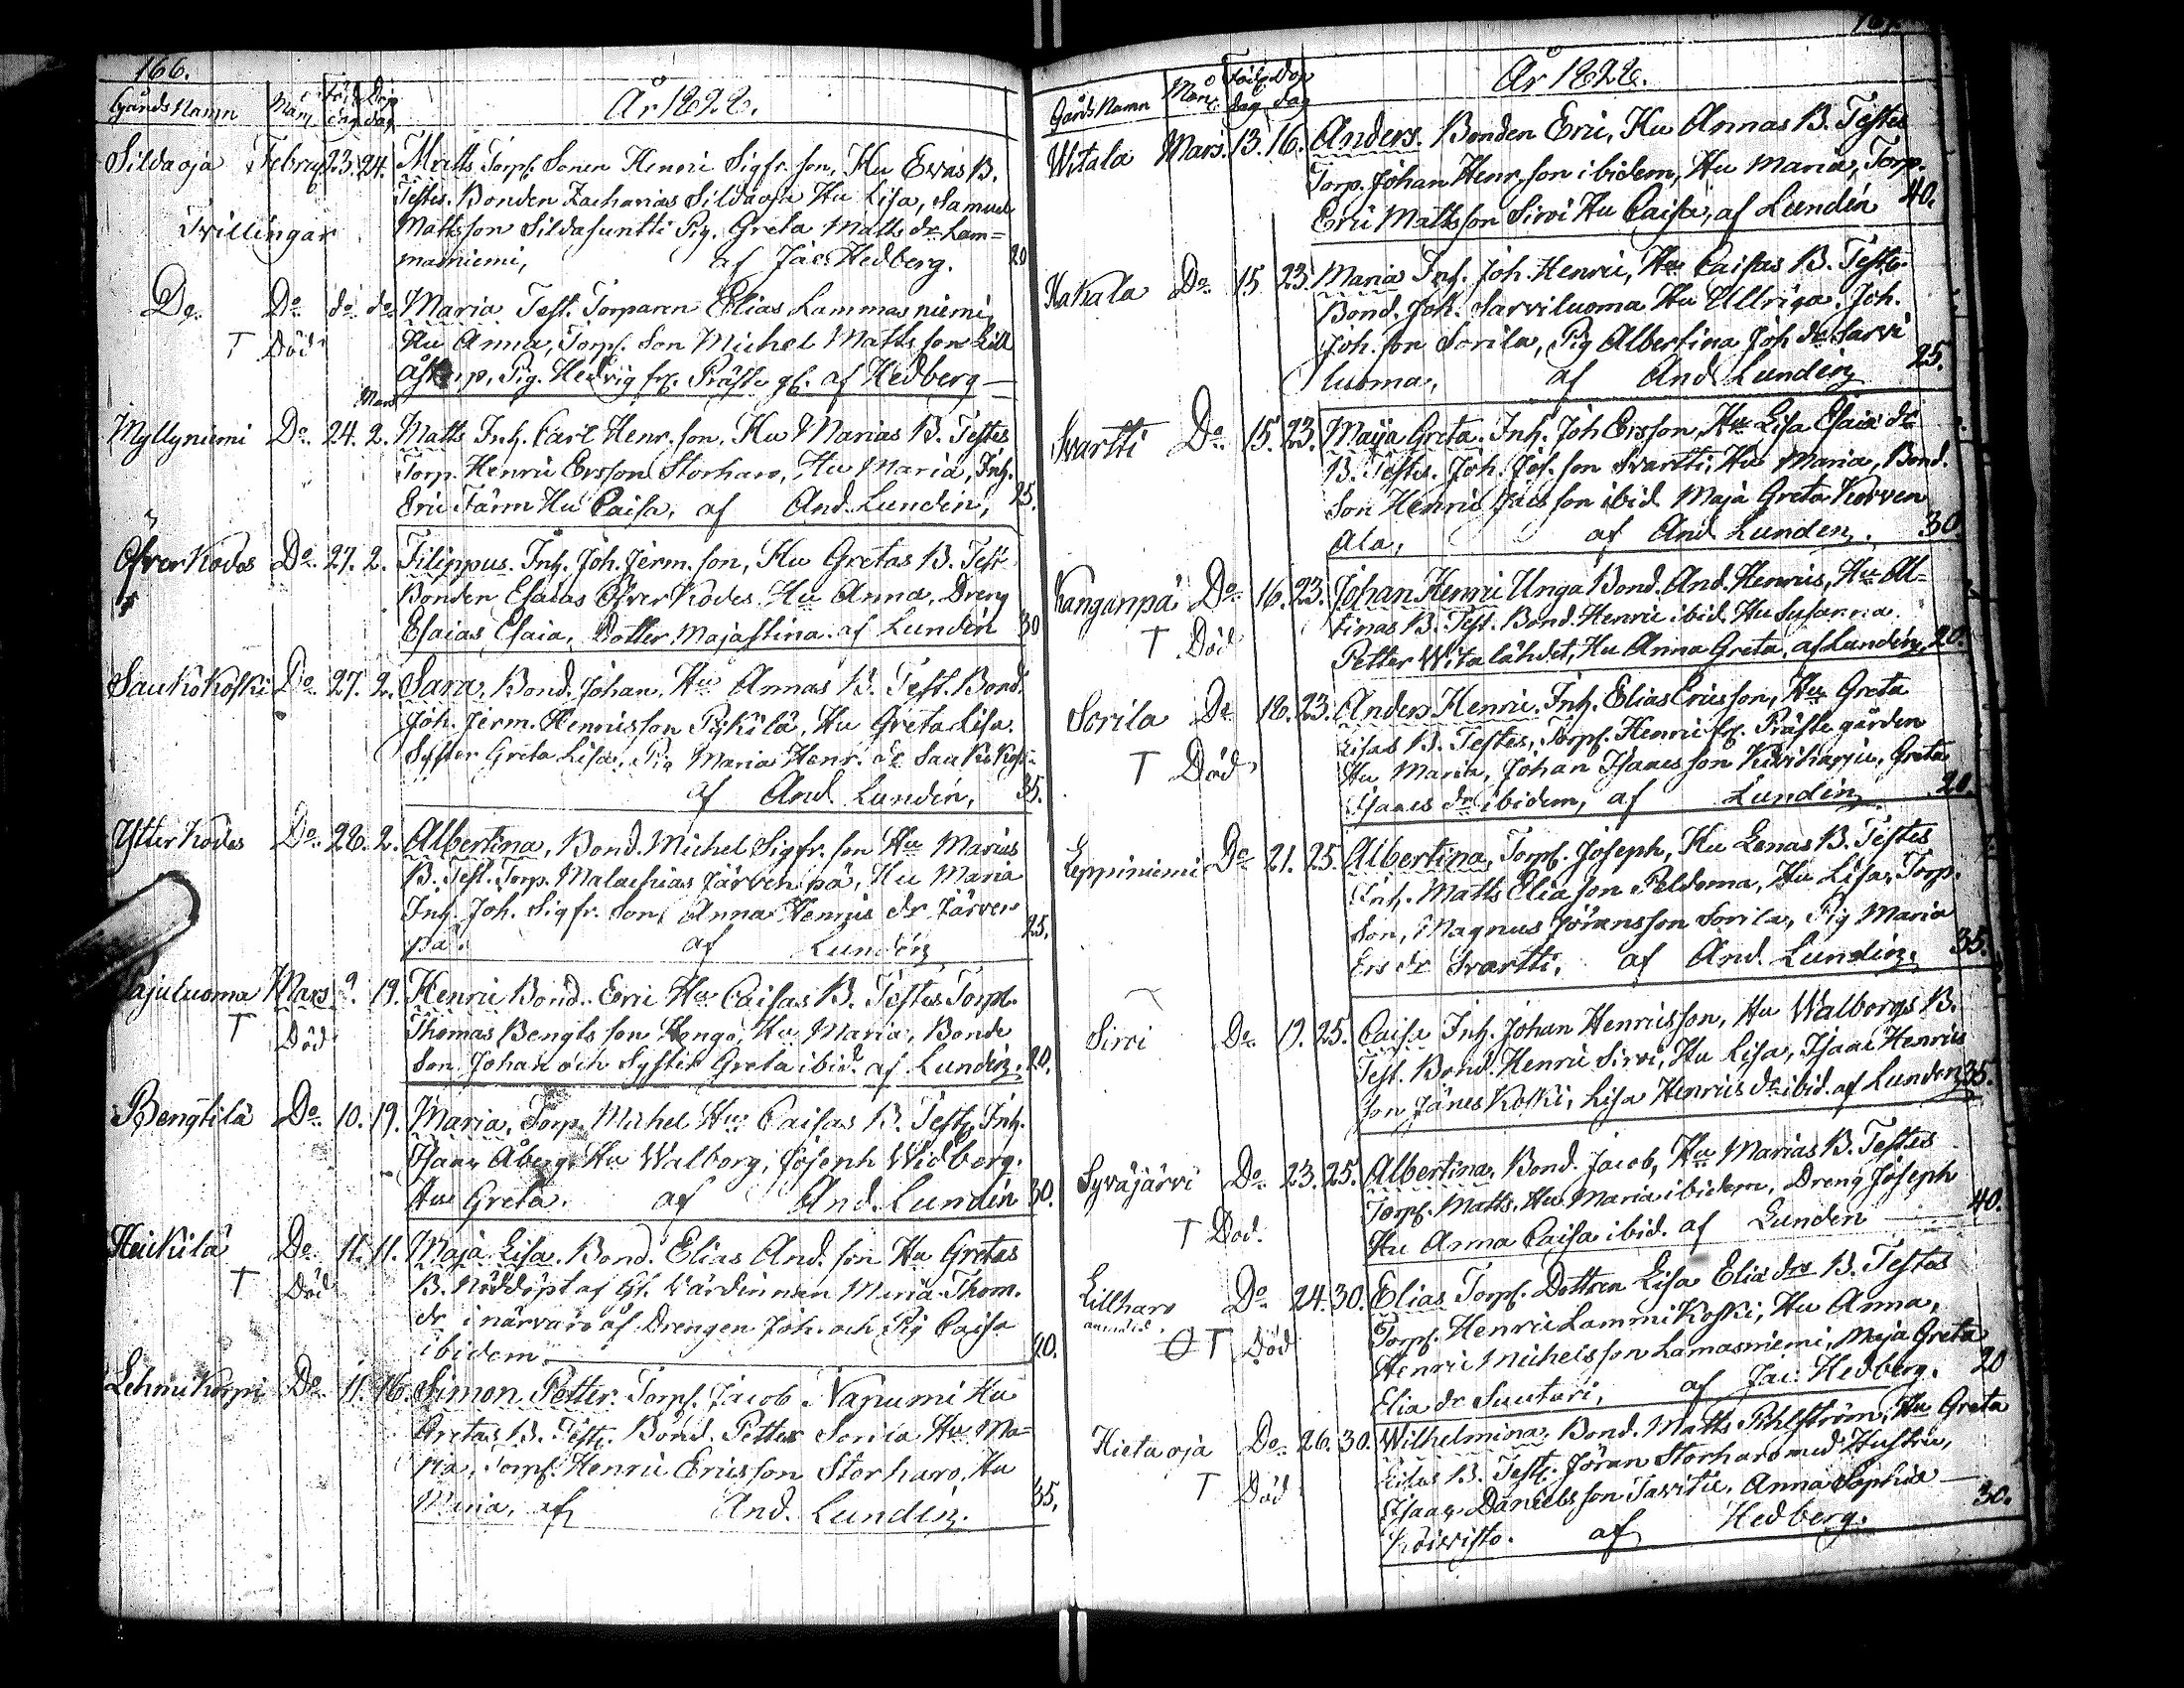 166.
Gårds Namn Mån. Föd. dag Dop dag År 1828.
Sildaoja Febru 23. 24. Matts Torp. Sonen Henric Sigfr. son, Hu Evas B.
Testes. Bonden Zacharias Sildaoja Hu Lisa, Samuel
Tvillingar Mattsson Sildasuntti Pig. Greta Matts dr Lam=
masniemi, af Jac. Hedberg. 20
Do Do do do Maria Test. Torparen Elias Lammasniemi
T Död Hu Anna, Torp. Son Michel Matts son Lill
Pig. Hedvig fr. Präste gl. af Hedberg
Mars
Myllyniemi Do 24. 2. Matts Inh. Carl Henr. son, Hu Marias B. Testes
Torp. Henric Ersson Storharo, Hu Maria, Inh.
Eric Färm Hu Caisa, af And. Lundin, 25.
Öfver Kodes Do 27. 2. Filippus. Inh. Joh. Jerm. son, Hu Gretas B. Test
Bonden Esaias Öfver Kodes, Hu Anna, Dreng
Esaias Esaia, Dotter Majastina. af Lundin 30
Saukokoski Do 27. 2. Sara, Bond. Johan, Hu Annas B. Test. Bond.
Joh. Jerm. Henricsson Pykilä, Hu Greta Lisa.
Syster Greta Lisa, Pig Maria Henr. dr Saukokos-
af And. Lundin, 35.
Ytter Kodes Do 28. 2. Albertina, Bond. Michel Sigfr. son Hu Marias
B. Test. Torp. Malachias Järvenpä, Hu Maria
Inh. Joh. Sigfr. Son, Anna Henrics dr Järven
pä. af Lundin 25.
Pajuluoma Mars 9. 19. Henric Bond. Eric Hu Caisas B. Testes Torp.
T Död Thomas Bengts son Hongo, Hu Maria, Bonde
Son Johan och Syster Greta ibid. af Lundin. 20.
Bengtilä Do 10. 19. Maria, Torp. Michel Hu Caisas B. Test. Inh.
Isaac Åberg, Hu Walborg, Joseph Widberg.
Hu Greta. af And. Lundin 30.
Heickilä Do 11. 11. Maja Lisa. Bond. Elias And. son Hu Gretas
T Död B. Nöddöpt af Gl. Värdinnan Maria Thom.
dr i närvaro af Drengen Joh. och Pig Caisa
ibidem 20.
Lehmikorpi Do 11. 16. Simon Petter. Torp. Jacob Napumi Hu
Gretas B. Test. Bond. Petter Soria Hu Ma=
ria, Torp. Henric Ericsson Storharo, Hu
Maria, af And. Lundin. 35.
167.
Gårds Namn Mån. Föd. dag Dop dag År 1828.
Witala Mars. 13. 16. Anders. Bonden Eric, Hu Annas B. Testes
Torp. Johan Henr. son ibidem, Hu Maria, Torp.
Eric Mattsson Sirvi Hu Caisa, af Lundin 40.
Kakala Do 15 23. Maria Inh. Joh. Henric, Hu Caisas B. Test.
Bond. Joh. Sarviluoma Hu Ullrica. Joh.
Joh. son Sorila, Pig Albertina Joh. dr Sarvi
luoma, af And. Lundin 25.
Svartti Do 15. 23. Maija Greta. Inh. Joh Ersson, Hu Lisa Esaiæ dr
B. Testes. Joh. Jos. son Svartti, Hu Maria, Bond.
Son Henric Jacs son ibid Maja Greta Korven
ala, af And Lundin. 30
Kanganpä Do 16. 23. Johan Henric Unga Bond. And. Henrics, Hu Al=
T Död tinas B. Test. Bond. Henric ibid. Hu Susanna
Petter Witalähdet, Hu Anna Greta, af Lundin, 20.
Sorila Do 18. 23. Anders Henric. Inh. Elias Ericsson, Hu Greta
T Död Lisas B. Testes, Torp. Henric fr. Präste gården
Hu Maria, Johan Isaacs son Kiviharju, Greta
Isaacs dr ibidem, af Lundin 20
Leppiniemi Do 21. 25. Albertina, Torp. Joseph, Hu Lenas B. Testes
Inh. Matts Elia son Peldoma, Hu Lisa, Torp.
Son, Magnus Göransson Sorila, Pig Maria
Ers dr Svartti, af And. Lundin. 35.
Sirvi Do 19. 25. Caisa Inh. Johan Henricsson, Hu Walborgs B.
Test. Bond. Henric Sirvi, Hu Lisa, Isaac Henrics
son Jänes Koski, Lisa Henrics dr ibid. af Lundin 35.
Syväjärvi Do 23. 25. Albertina. Bond. Jacob, Hu Marias B. Testes
Torp. Matts, Hu Maria ibidem, Dreng Joseph
T Död. Hu Anna Caisa ibid. af Lundin 40.
Lillharo Do 24. 30. Elias Torp. Dottren Lisa Elia drs B. Testes
T Död Torp. Henric Lammikoski, Hu Anna,
Henric Michelsson Lamasniemi, Maja Greta
Elia dr Suutari, af Jac. Hedberg. 20
Hietaoja Do 26. 30. Wilhelmina, Bond. Matts Pihlström, Hu Greta
T Död Lisas B. Test. Jöran Storharo med Hustru,
Isaac Danielsson Tavitu, Anna Sophia
Koivisto. af Hedberg. 30.